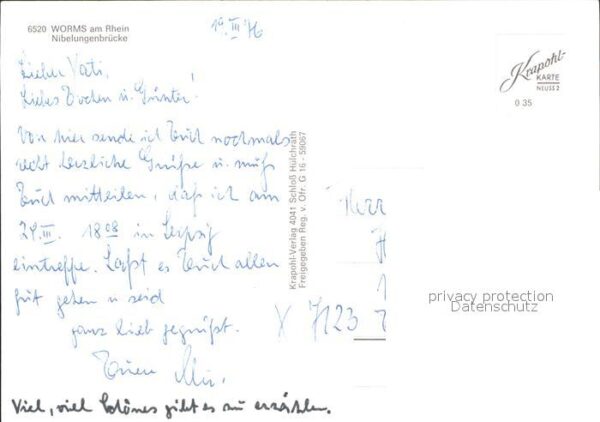 6520 WORMS am Rhein
Nibelungenbrücke
19. III 76
Lieber Vati,
Liebes Tochen u. Günter!
Von hier sende ich Euch nochmals
recht herzliche Grüße u. muß
Euch mitteilen, daß ich am
29. III. 18 08 in Leipzig
eintreffe. Laßt es Euch allen
gut gehen u seid
ganz lieb gegrüßt.
Euer
Viel, viel Schönes gibt es zu erzählen.
Krapohl-Verlag 4041 Schloß Hülchrath
Freigegeben Reg. v. Ofr. G 16 - 59067
Krapohl-
KARTE
NEUSS 2
0 35
Herr
H
X 7123
privacy protection
Datenschutz